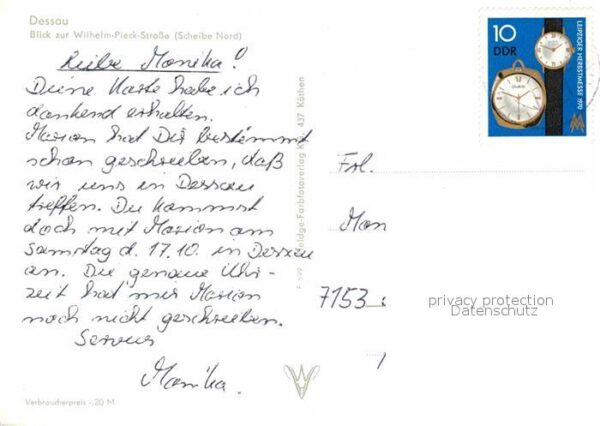 Dessau
Blick zur Wilhelm-Pieck-Straße (Scheibe Nord)
Liebe Monika!
Deine Karte habe ich
dankend erhalten.
Marion hat Dir bestimmt
schon geschrieben, daß
wir uns in Dessau
treffen. Du kommst
doch mit Marion am
Samstag d. 17.10. in Dessau
an. Die genaue Uhr-
zeit hat mir Marion
noch nicht geschrieben.
Servus
Monika.
Verbraucherpreis -,20 M
Feldge-Farbfotoverlag KG, 437 Köthen
10
DDR
LEIPZIGER HERBSTMESSE 1970
Frl.
Mon
7153
privacy protection
Datenschutz